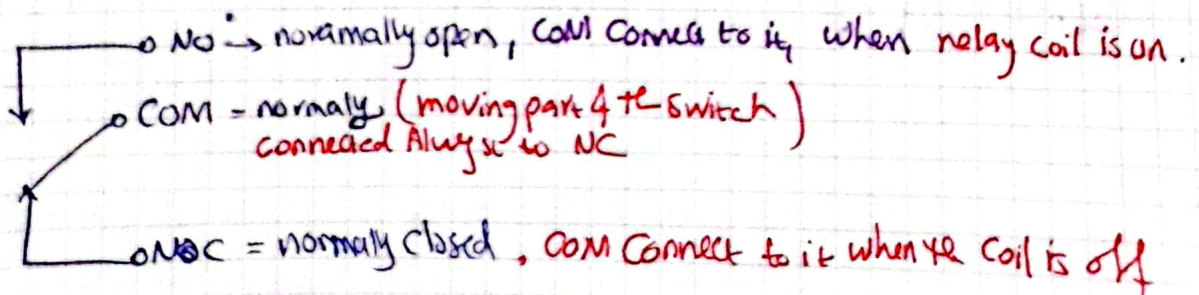 NO → noramally open, COM Connect to it, when relay coil is on.
COM = normaly (moving part of the switch)
connected Always to NC
NC = normaly closed, COM Connect to it when the coil is off